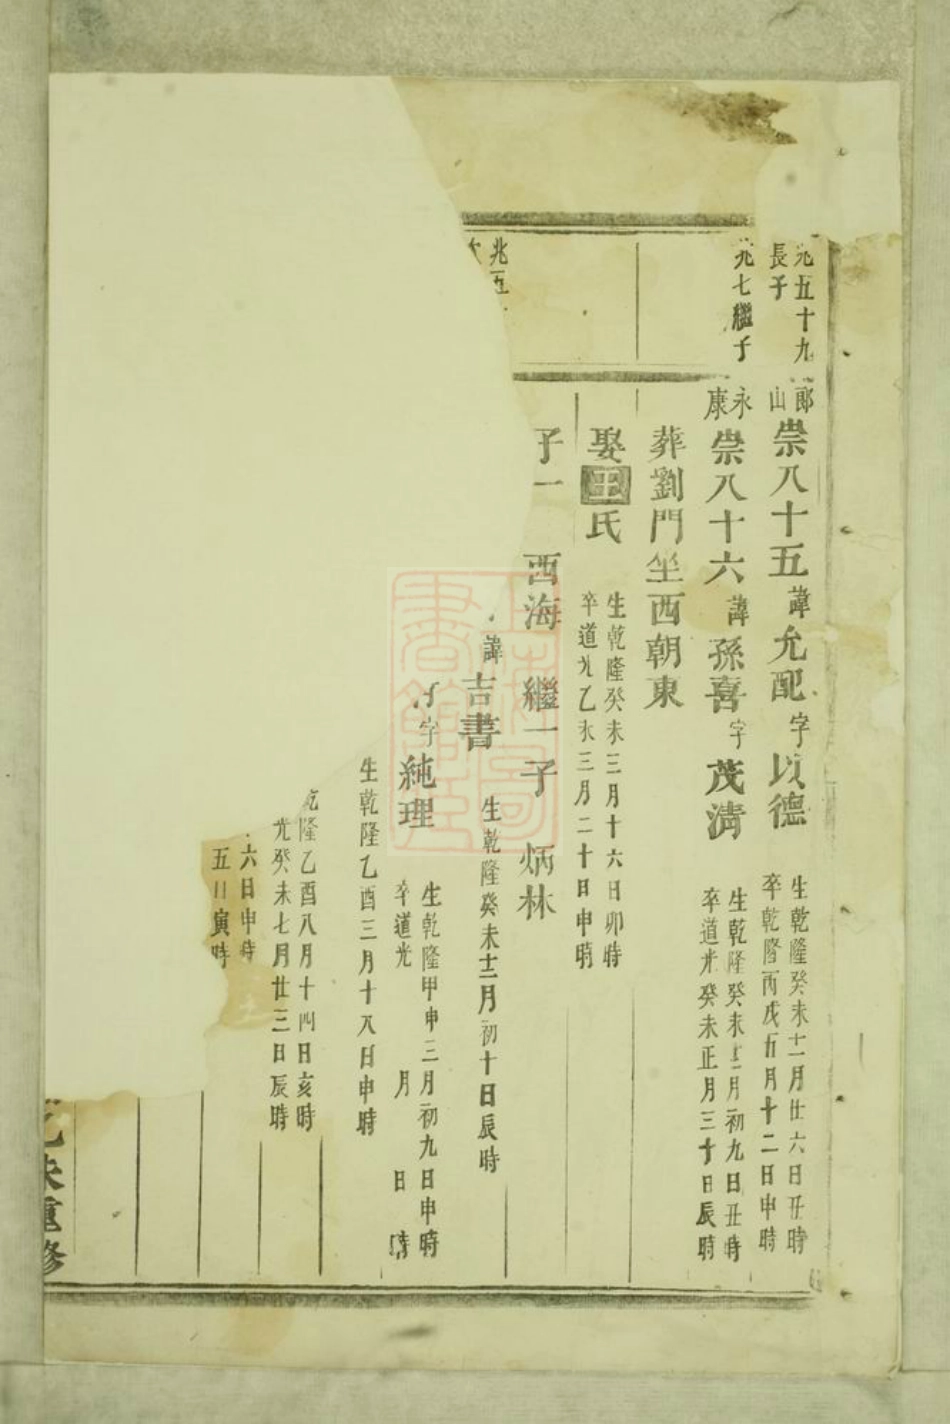 兆五十九
長子
郎
山
崇八十五諱允配字以德
生乾隆癸未十二月廿六日丑時
卒乾隆丙戌五月十二日申時
兆七繼子
永
康
崇八十六諱孫喜字茂淸
生乾隆癸未十二月初九日丑時
卒道光癸未正月三十日辰時
葬劉門坐西朝東
娶王氏
生乾隆癸未三月十六日卯時
卒道光乙未三月二十日申時
子一 西海 繼一子 炳林
兆五
次
諱吉書
生乾隆癸未十二月初十日辰時
字純理
生乾隆甲申三月初九日申時
卒道光 月 日 時
生乾隆乙酉三月十八日申時
乾隆乙酉八月十四日亥時
光癸未七月廿三日辰時
六日申時
五日寅時
乙未重修